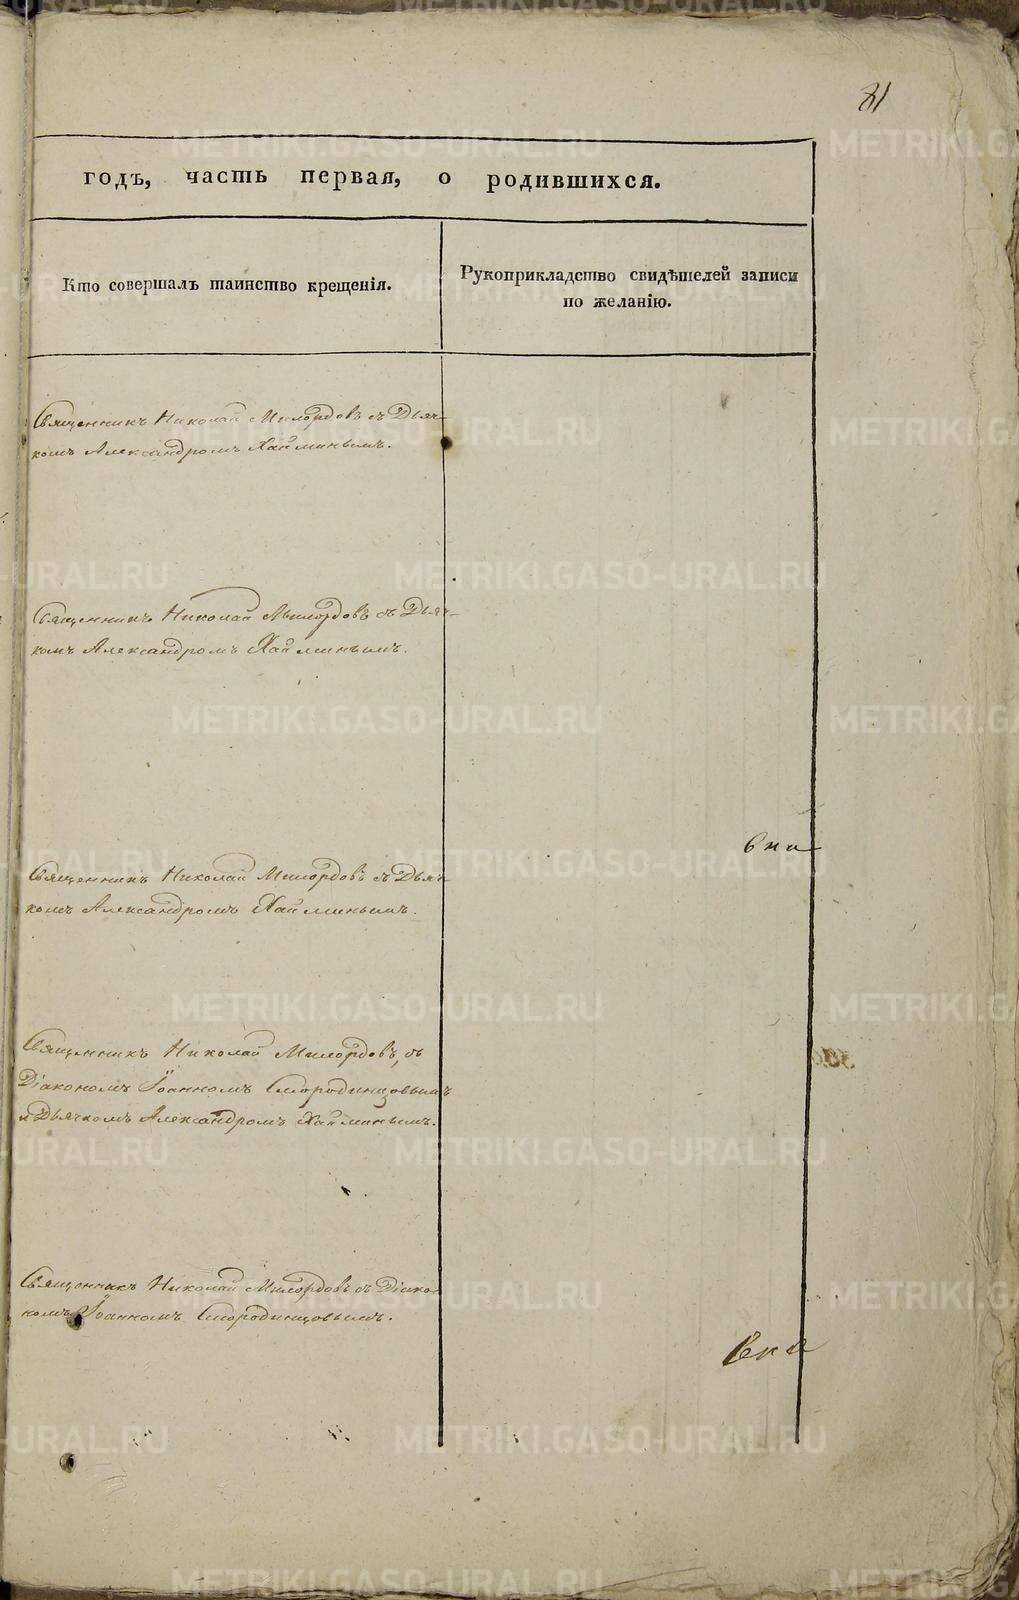 81
годъ, часть первая, о родившихся.
Кто совершалъ таинство крещенія.
Рукоприкладство свидѣтелей записи
по желанію.
Священникъ Николай Милордовъ съ Дьяч-
комъ Александромъ Хайминымъ.
Священникъ Николай Милордовъ съ Дьяч-
комъ Александромъ Хайминымъ.
Священникъ Николай Милордовъ съ Дьяч-
комъ Александромъ Хайминымъ.
Священникъ Николай Милордовъ, съ
Діакономъ Іоанномъ Смородинцовымъ
и Дьячкомъ Александромъ Хайминымъ.
Священникъ Николай Милордовъ съ Діако-
номъ Іоанномъ Смородинцовымъ.
METRIKI.GASO-URAL.RU